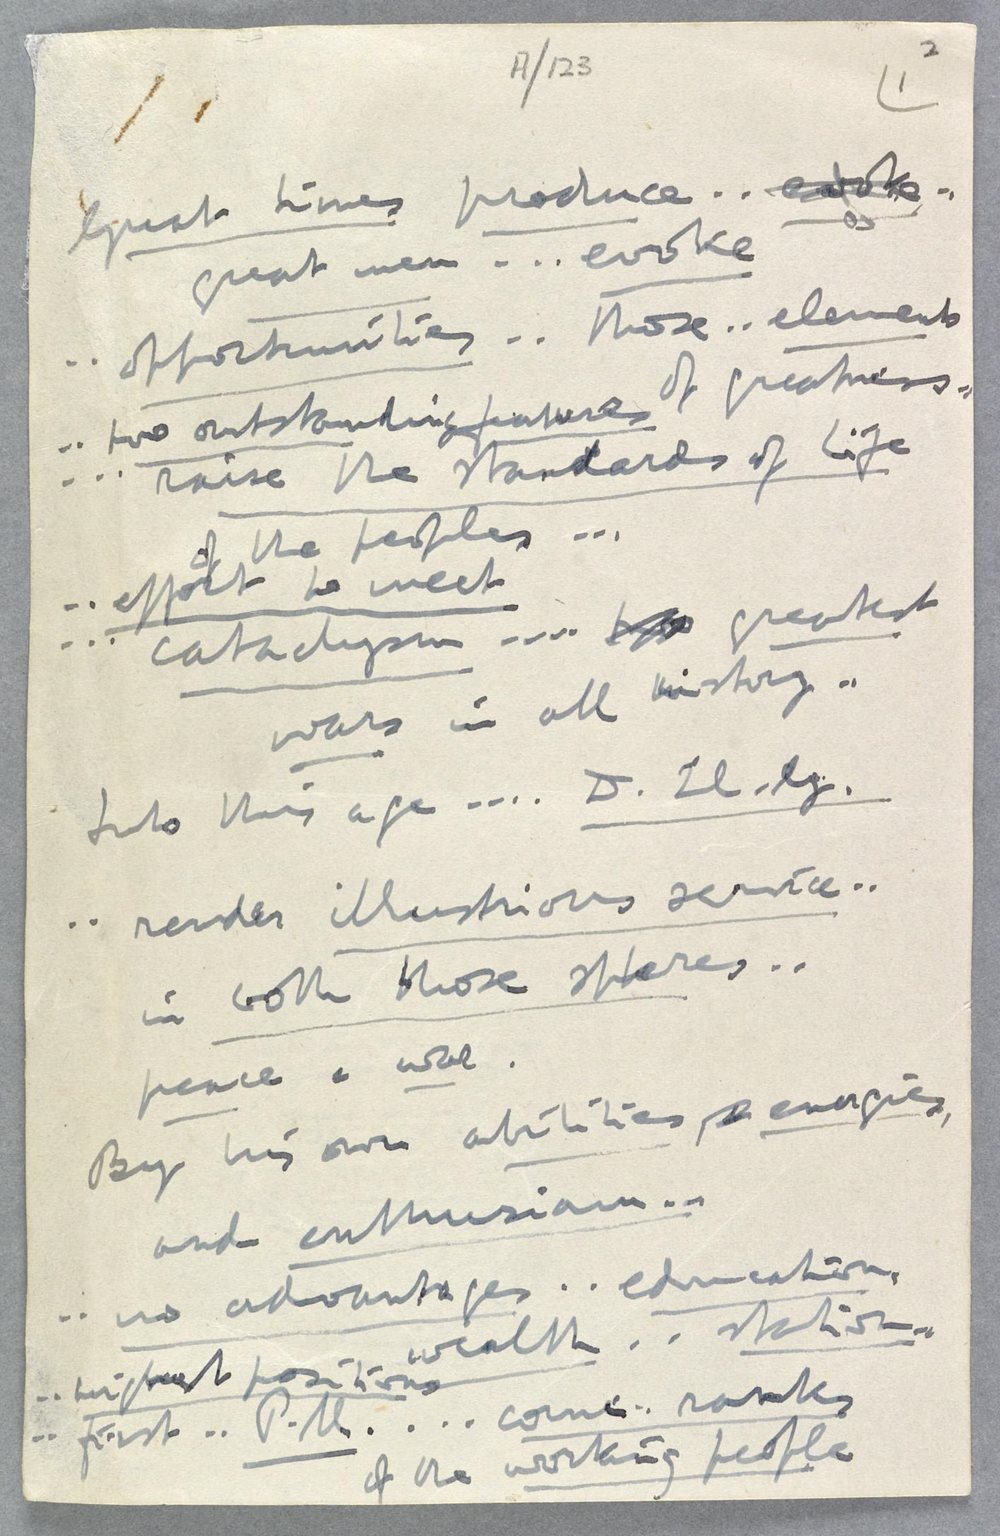 A/123
1 2
Great times produce .. evoke ..
great men ... evoke
.. opportunities .. those .. elements
of greatness ..
.. two outstanding features
... raise the standards of life
of the peoples ...
.. effort to meet
... cataclysm .... greatest
wars in all history ..
Into this age .... D. Ll. G.
.. render illustrious service ..
in both those spheres ..
peace & war .
By his own abilities, energies,
and enthusiasm ..
.. no advantages .. education,
wealth .. station ..
.. highest positions
.. first .. P.M. ... come .. ranks
of the working people